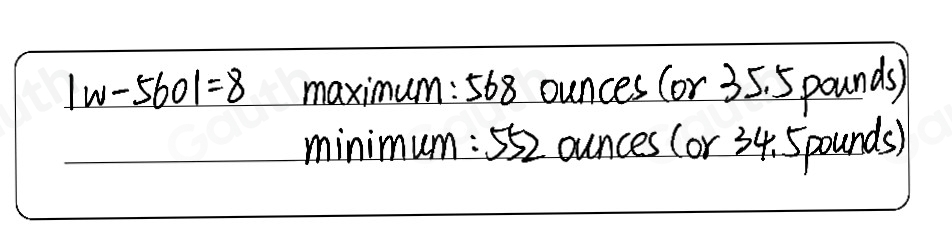 |w-560|=8 maximum: 568 ounces (or 35.5 pounds)
minimum: 552 ounces (or 34.5 pounds)